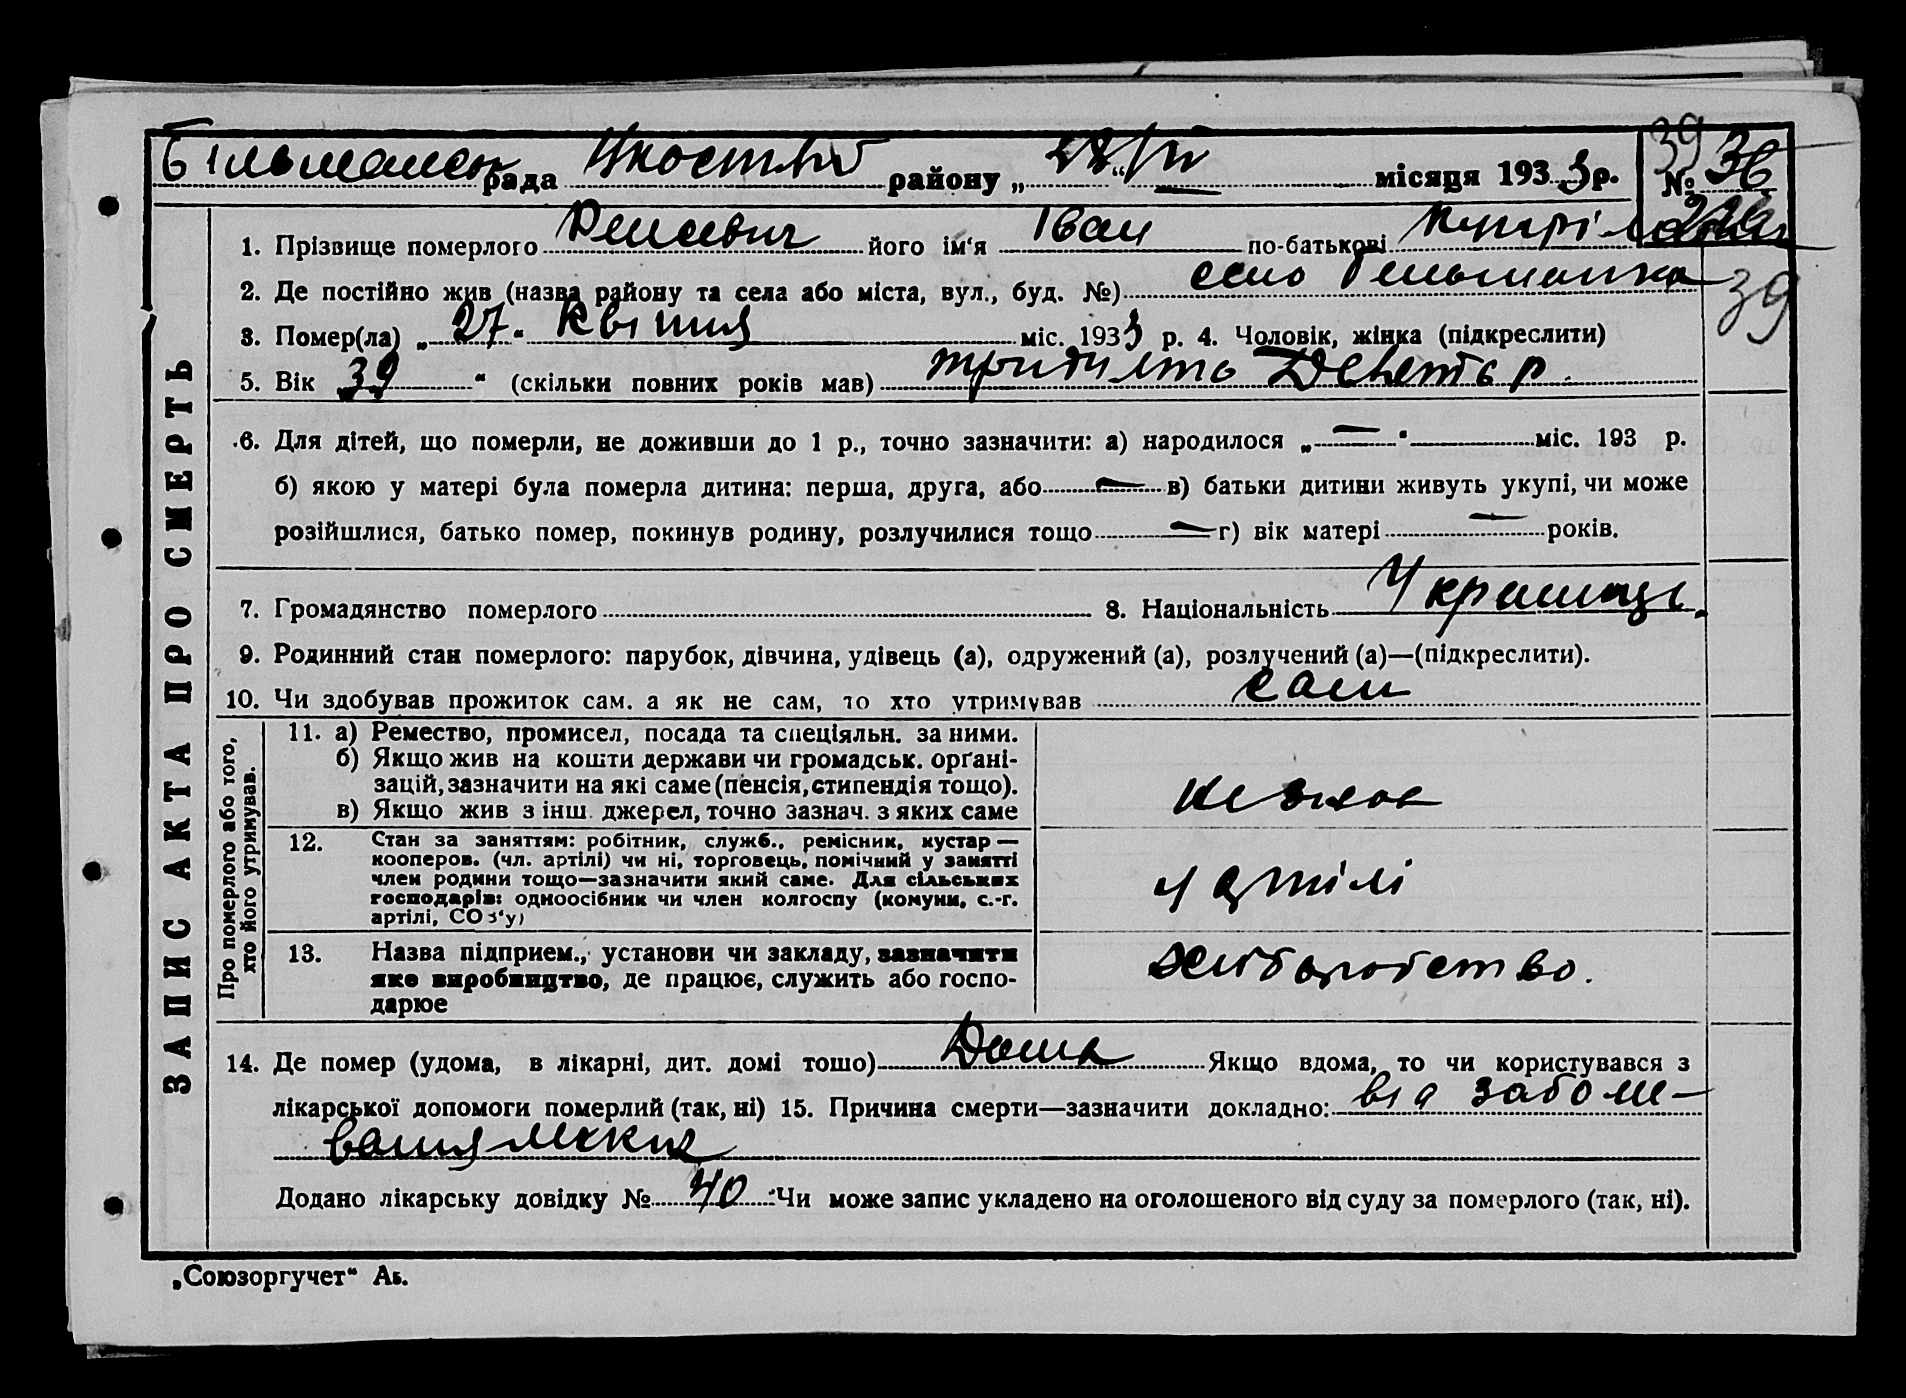 рада району „28/IV“ місяця 1933 р. № 36
39
1. Прізвище померлого його ім'я Іван по-батькові
2. Де постійно жив (назва району та села або міста, вул., буд. №) село
39
3. Помер(ла) „27“ квітня міс. 1933 р. 4. Чоловік, жінка (підкреслити)
5. Вік „39“ (скільки повних років мав)
6. Для дітей, що померли, не доживши до 1 р., точно зазначити: а) народилося „—“ міс. 193 р.
б) якою у матері була померла дитина: перша, друга, або — в) батьки дитини живуть укупі, чи може
розійшлися, батько помер, покинув родину, розлучилися тощо — г) вік матері — років.
7. Громадянство померлого 8. Національність
9. Родинний стан померлого: парубок, дівчина, удівець (а), одружений (а), розлучений (а)—(підкреслити).
10. Чи здобував прожиток сам, а як не сам, то хто утримував сам
ЗАПИС АКТА ПРО СМЕРТЬ
Про померлого або того,
хто його утримував.
11. а) Ремество, промисел, посада та спеціяльн. за ними.
б) Якщо жив на кошти держави чи громадськ. орґані-
зацій, зазначити на які саме (пенсія, стипендія тощо).
в) Якщо жив з інш. джерел, точно зазнач. з яких саме
12. Стан за заняттям: робітник, служб., ремісник, кустар —
кооперов. (чл. артілі) чи ні, торговець, помічний у занятті
член родини тощо—зазначити який саме. Для сільських
господарів: одноосібник чи член колгоспу (комуни, с.-г.
артілі, СОЗ'у)
у артілі
13. Назва підприєм., установи чи закладу, зазначити
яке виробництво, де працює, служить або госпо-
дарюе
хліборобство.
14. Де помер (удома, в лікарні, дит. домі тощо) Дома Якщо вдома, то чи користувався з
лікарської допомоги померлий (так, ні) 15. Причина смерти—зазначити докладно: від
Додано лікарську довідку № 40 Чи може запис укладено на оголошеного від суду за померлого (так, ні).
„Союзоргучет“